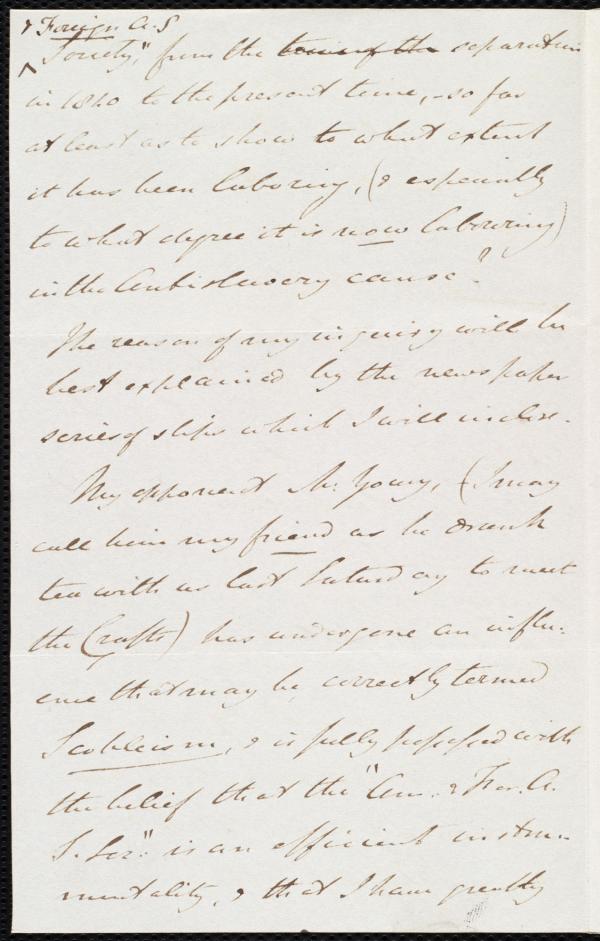 & Foreign A. S
Society," from the time of the separation
in 1840 to the present time, - so far
at least as to show to what extent
it has been laboring, (& especially
to what degree it is now labouring)
in the Antislavery cause?"
The reason of my inquiry will be
best explained by the newspaper
series of slips which I will inclose.
My opponent Mr. Young, (I may
call him my friend as he drank
tea with us last Saturday to meet
the Crafts) has undergone an influ-
ence that may be correctly termed
Scobleism, & is fully possessed with
the belief that the "Am. & For. A.
S. Soc." is an efficient instru-
mentality, & that I have greatly